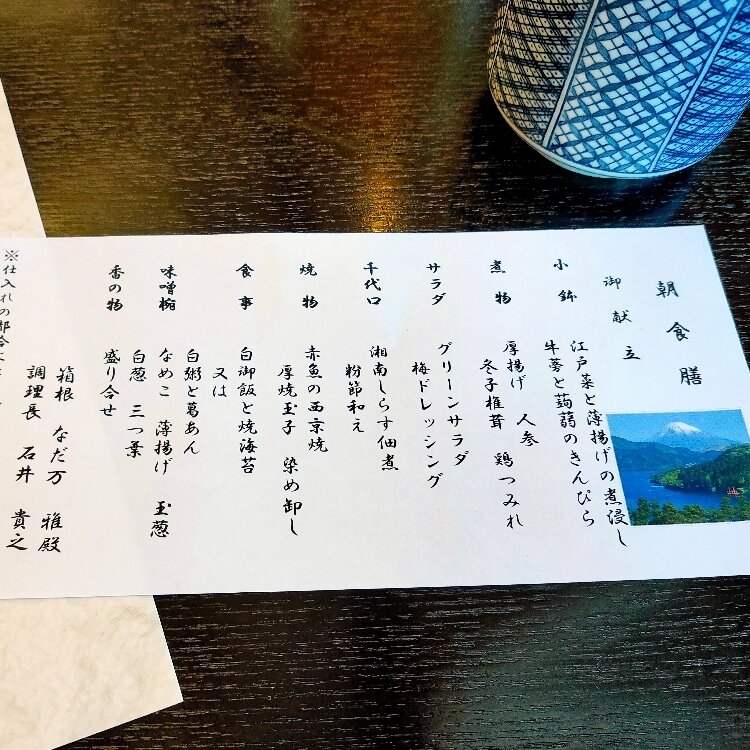 朝食膳
御献立
小鉢 江戸菜と薄揚げの煮浸し
牛蒡と蒟蒻のきんぴら
煮物 厚揚げ 人参 鶏つみれ
冬子椎茸
サラダ グリーンサラダ
梅ドレッシング
千代口 湘南しらす佃煮
粉節和え
焼物 赤魚の西京焼
厚焼玉子 染め卸し
食事 白御飯と焼海苔
又は
白粥と葛あん
味噌椀 なめこ 薄揚げ 玉葱
白葱 三つ葉
香の物 盛り合せ
箱根 なだ万 雅殿
調理長 石井 貴之
※仕入れの都合に